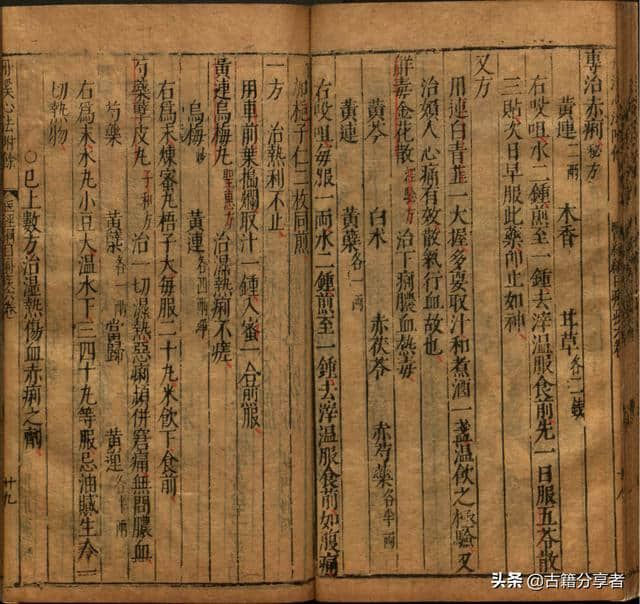 專治赤痢秘方
黃連二兩 木香 甘草各二錢
右㕮咀水二鍾煎至一鍾去滓溫服食前先一日服五苓散
三貼次日早服此藥卽止如神
又方
用連白青韮一大握多婁取汁和煮酒一盞溫飲之極驗又
治婦人心痛有效散氣行血故也
解毒金花散 治下痢膿血熱毒
黃芩 白朮 赤茯苓 赤芍藥各半兩
黃連 黃蘗各一兩
右㕮咀每服一兩水二鍾煎至一鍾去滓溫服食前如腹痛
加梔子仁二枚同煎
一方 治熱利不止
用車前葉搗爛取汁一鍾入蜜一合煎服
黃連烏梅丸聖惠方 治濕熱痢不瘥
烏梅 黃連各四兩
右爲末煉蜜丸梧子大每服二十丸米飲下食前
芍藥蘗皮丸子和方 治一切濕熱惡痢頻併窘痛無問膿血
芍藥 黃蘗各一兩 當歸 黃連各半兩
右爲末水丸小豆大溫水下三四十丸等服忌油膩生冷一
切熱物
○已上數方治濕熱傷血赤痢之劑
丹溪心法附餘
廿九
頭条 @古籍分享者